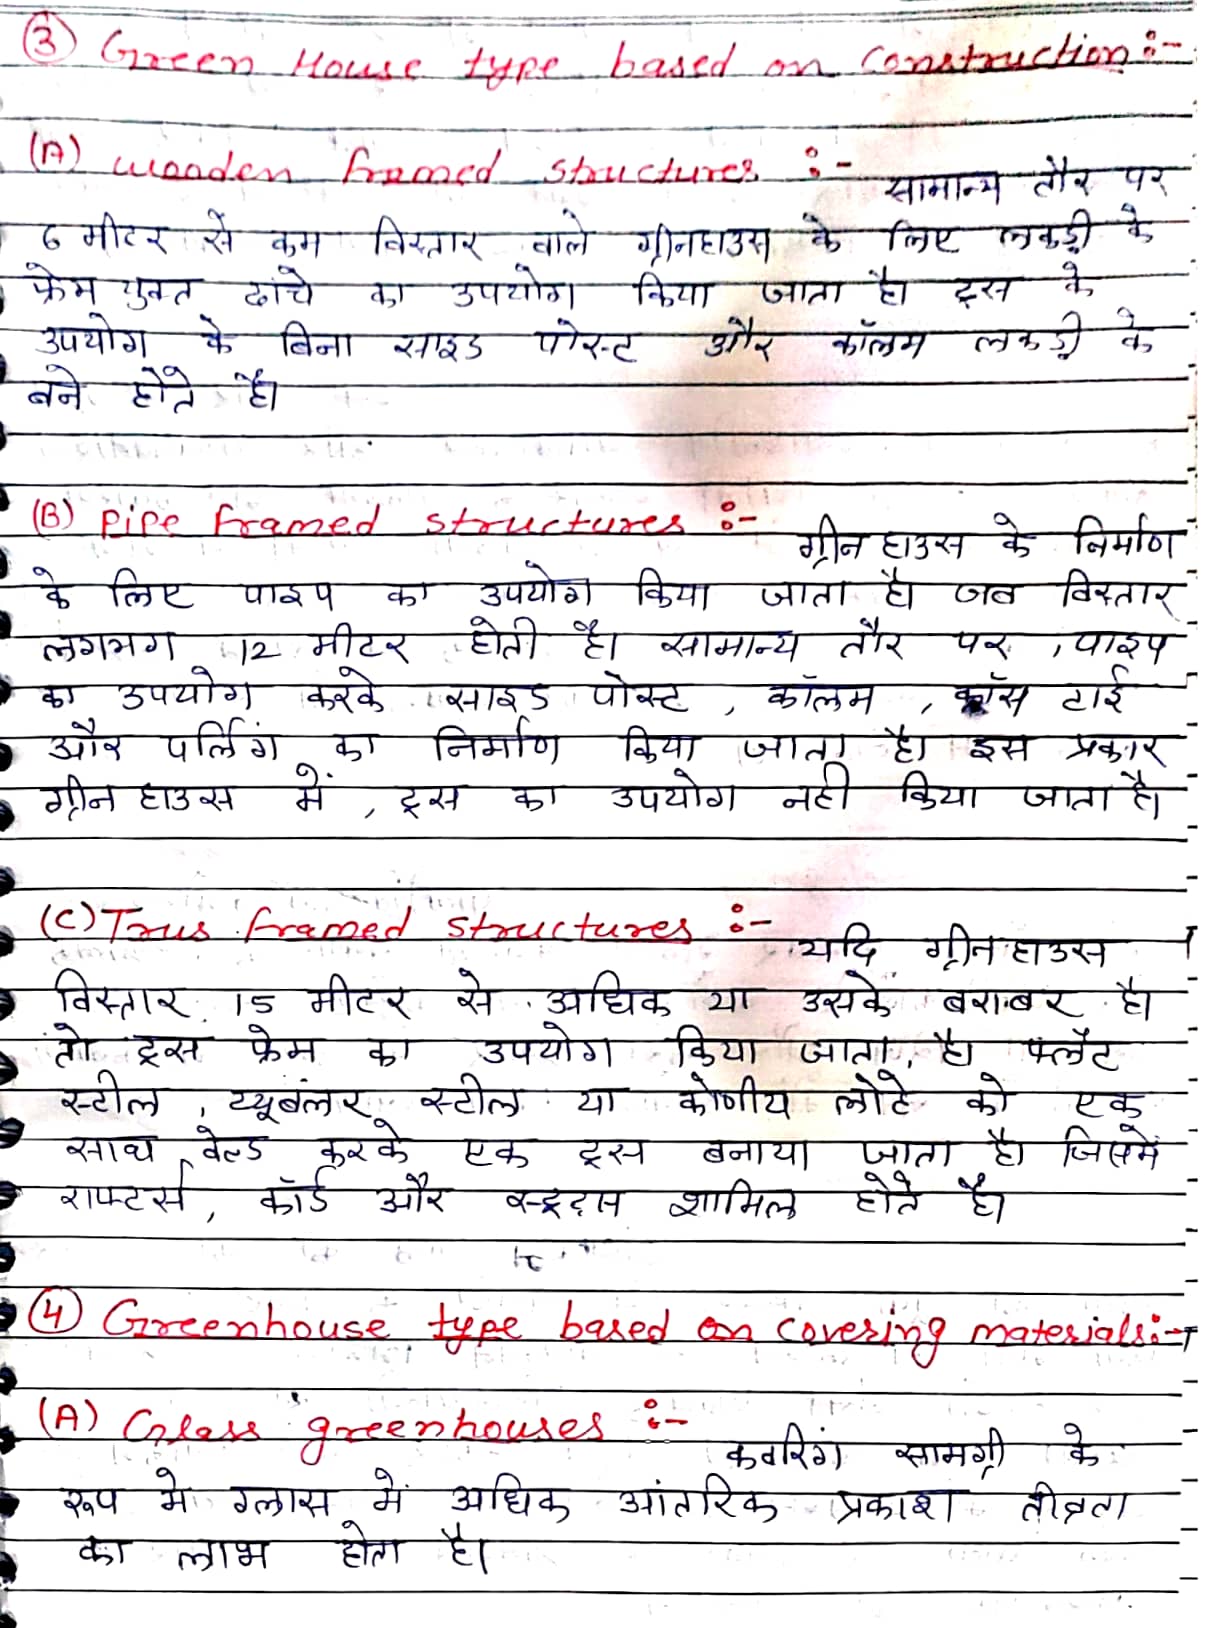 ③ Green House type based on Construction :-
(A) wooden framed structures :- सामान्य तौर पर
6 मीटर से कम विस्तार वाले ग्रीनहाउस के लिए लकड़ी के
फ्रेम युक्त ढांचे का उपयोग किया जाता है। ट्रस के
उपयोग के बिना साइड पोस्ट और कॉलम लकड़ी के
बने होते है।
(B) Pipe framed structures :- ग्रीन हाउस के निर्माण
के लिए पाइप का उपयोग किया जाता है। जब विस्तार
लगभग 12 मीटर होती है। सामान्य तौर पर , पाइप
का उपयोग करके साइड पोस्ट , कॉलम , क्रॉस टाई
और पर्लिंग का निर्माण किया जाता है। इस प्रकार
ग्रीन हाउस में , ट्रस का उपयोग नही किया जाता है।
(C) Trus framed structures :- यदि ग्रीन हाउस
विस्तार 15 मीटर से अधिक या उसके बराबर है।
तो ट्रस फ्रेम का उपयोग किया जाता है। फ्लैट
स्टील , ट्यूबलर स्टील या कोणीय लोटे को एक
साथ वेल्ड करके एक ट्रस बनाया जाता है। जिसमें
राफ्टर्स , कॉर्ड और स्ट्रट्स शामिल होते है।
④ Greenhouse type based on covering materials :-
(A) Glass greenhouses :- कवरिंग सामग्री के
रूप मे ग्लास में अधिक आंतरिक प्रकाश तीव्रता
का लाभ होता है।